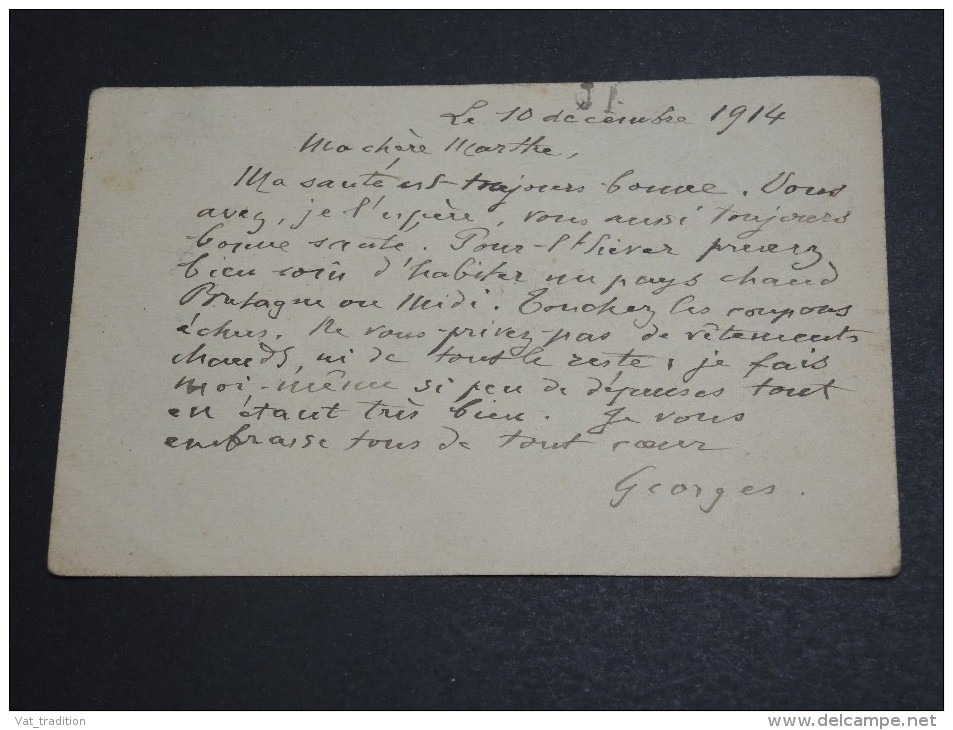 Le 10 décembre 1914
Ma chère Marthe,
Ma santé est toujours bonne. Vous
avez, je l'espère, vous aussi toujours
bonne santé. Pour l'hiver prenez
bien soin d'habiter un pays chaud
Bretagne ou Midi. Touchez les coupons
échus. Ne vous privez pas de vêtements
chauds, ni de tout le reste ; je fais
moi-même si peu de dépenses tout
en étant très bien. Je vous
embrasse tous de tout cœur
Georges.
Vat_tradition
www.delcampe.net